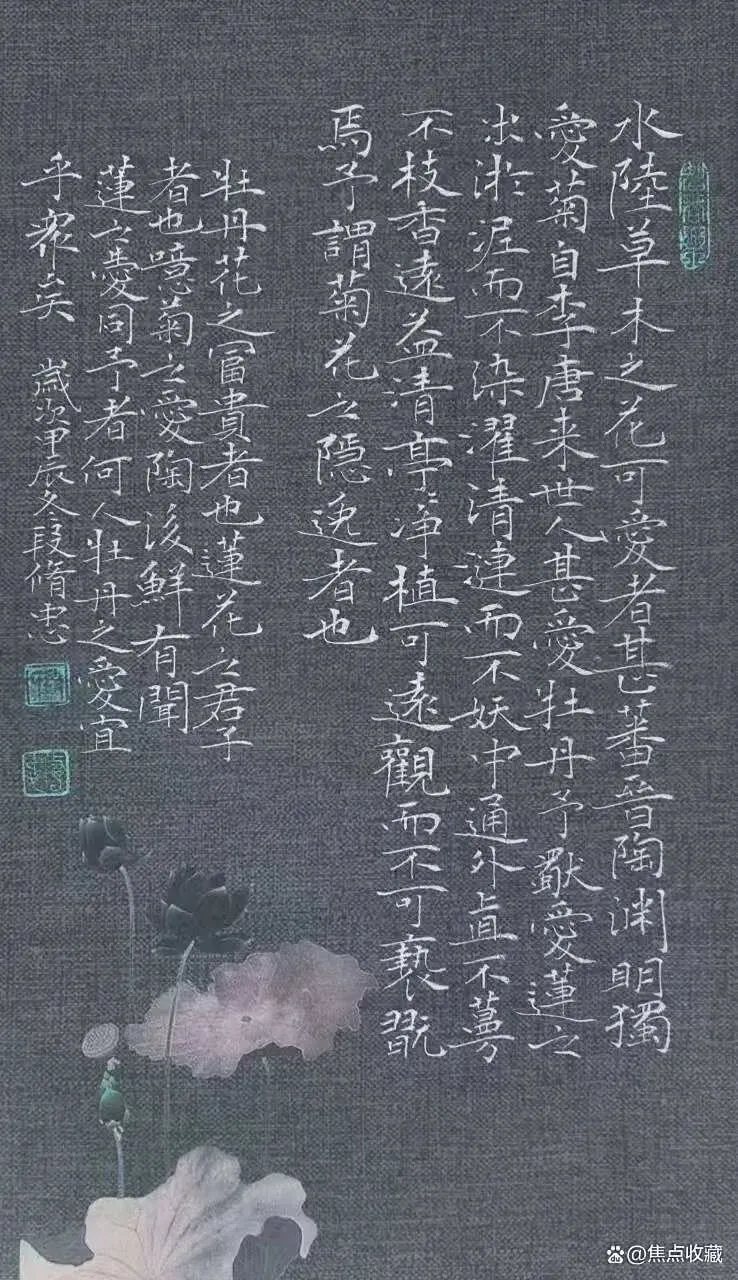 水陸草木之花可愛者甚蕃晉陶渊明獨
愛菊自李唐来世人甚愛牡丹予獣愛蓮之
出淤泥而不染濯清漣而不妖中通外直不蔓
不枝香遠益清亭〻净植可遠觀而不可褻翫
焉予謂菊花之隱逸者也
牡丹花之冨貴者也蓮花之君子
者也噫菊之愛陶後鮮有聞
蓮之愛同予者何人牡丹之愛宜
乎衆矣
歲次甲辰冬段脩忠
@焦点收藏